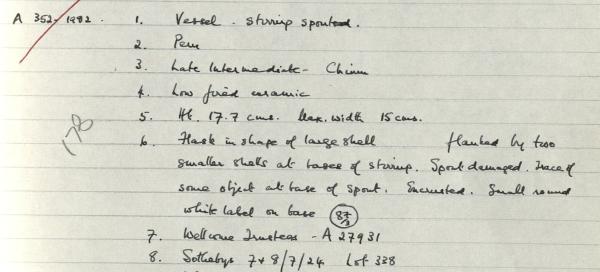 A 352-1982. 1. Vessel - stirrup spouted.
2. Peru
3. Late Intermediate - Chimu
4. Low fired ceramic
5. Ht. 17.7 cms. Max. width 15 cms.
178
6. Flask in shape of large shell flanked by two
smaller shells at bases of stirrup. Spout damaged. Trace of
some object at base of spout. Encrusted. Small round
white label on base 87/3
7. Wellcome Trustees - A 27931
8. Sothebys 7+8/7/24 Lot 338